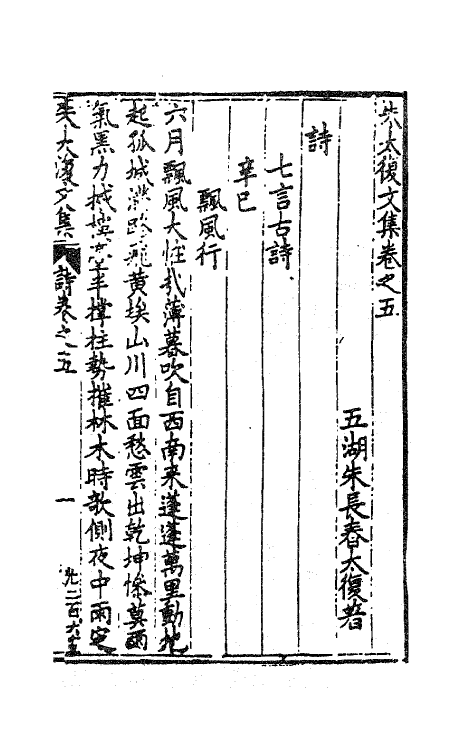 朱太復文集卷之五
五湖朱長春太復著
詩
七言古詩
辛巳
飄風行
六月飄風大怪哉薄暮吹自西南來蓬蓬萬里動地
起孤城飛黃埃山川四面愁雲出乾坤慘莫
氣黑力撼半撐柱勢摧林木時欹側夜中雨
朱太復文集 詩卷之五 一